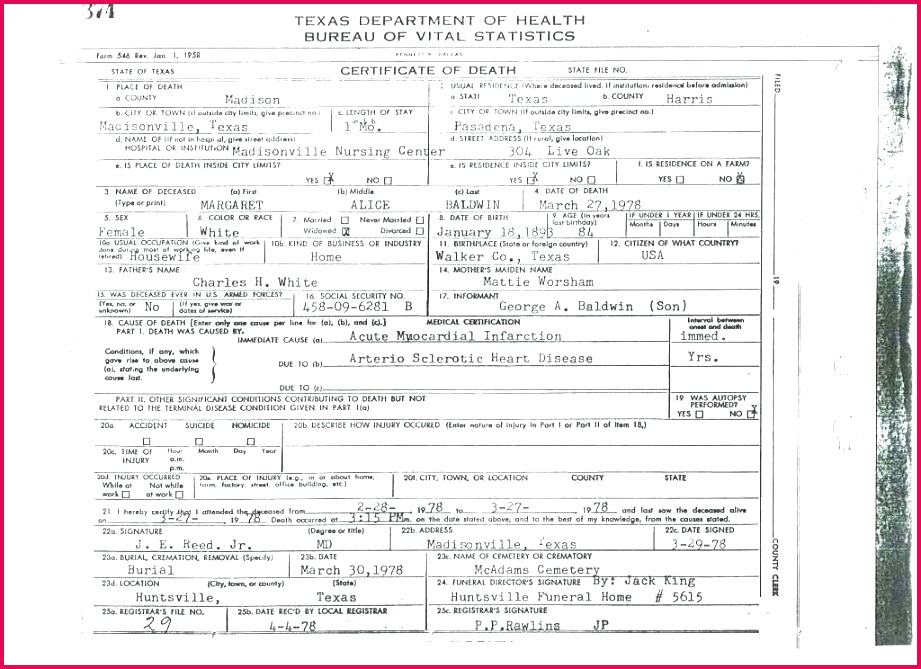 374
TEXAS DEPARTMENT OF HEALTH
BUREAU OF VITAL STATISTICS
Form 546 Rev. Jan. 1, 1958
STATE OF TEXAS CERTIFICATE OF DEATH STATE FILE NO.
1 PLACE OF DEATH
a. COUNTY Madison
2 USUAL RESIDENCE (Where deceased lived. If institution: residence before admission)
a. STATE Texas b. COUNTY Harris
b. CITY OR TOWN (If outside city limits, give precinct no.) c. LENGTH OF STAY
Madisonville, Texas 1 Mo.
c. CITY OR TOWN (If outside city limits, give precinct no.)
Pasadena, Texas
d. NAME OF (If not in hospital, give street address)
HOSPITAL OR INSTITUTION Madisonville Nursing Center
d. STREET ADDRESS (If rural, give location)
304 Live Oak
e. IS PLACE OF DEATH INSIDE CITY LIMITS?
YES X NO
e. IS RESIDENCE INSIDE CITY LIMITS?
YES X NO
f. IS RESIDENCE ON A FARM?
YES NO X
3. NAME OF DECEASED (a) First (b) Middle (c) Last 4. DATE OF DEATH
(Type or print) MARGARET ALICE BALDWIN March 27,1978
5. SEX
Female
6. COLOR OR RACE
White
7. Married Never Married
Widowed X Divorced
8. DATE OF BIRTH
January 18,1893
9. AGE (In years last birthday)
84
IF UNDER 1 YEAR IF UNDER 24 HRS.
Months Days Hours Minutes
10a USUAL OCCUPATION (Give kind of work done during most of working life, even if retired) Housewife
10b. KIND OF BUSINESS OR INDUSTRY
Home
11. BIRTHPLACE (State or foreign country)
Walker Co., Texas
12. CITIZEN OF WHAT COUNTRY?
USA
13. FATHER'S NAME
Charles H. White
14. MOTHER'S MAIDEN NAME
Mattie Worsham
15. WAS DECEASED EVER IN U.S. ARMED FORCES?
(Yes, no, or unknown) No (If yes, give war or dates of service)
16. SOCIAL SECURITY NO.
458-09-6281 B
17. INFORMANT
George A. Baldwin (Son)
18. CAUSE OF DEATH [Enter only one cause per line for (a), (b), and (c).] MEDICAL CERTIFICATION Interval between onset and death
PART I. DEATH WAS CAUSED BY:
IMMEDIATE CAUSE (a) Acute Myocardial Infarction immed.
Conditions, if any, which gave rise to above cause (a), stating the underlying cause last.
DUE TO (b) Arterio Sclerotic Heart Disease Yrs.
DUE TO (c)
PART II. OTHER SIGNIFICANT CONDITIONS CONTRIBUTING TO DEATH BUT NOT
RELATED TO THE TERMINAL DISEASE CONDITION GIVEN IN PART I(a)
19 WAS AUTOPSY PERFORMED?
YES NO X
20a. ACCIDENT SUICIDE HOMICIDE
20b. DESCRIBE HOW INJURY OCCURED. (Enter nature of injury in Part I or Part II of Item 18.)
20c. TIME OF INJURY Hour Month Day Year
a.m.
p.m.
20d. INJURY OCCURRED
While at work Not while at work
20e. PLACE OF INJURY (e.g., in or about home, farm, factory, street, office building, etc.)
20f. CITY, TOWN, OR LOCATION COUNTY STATE
21. I hereby certify that I attended the deceased from 2-28- , 1978 to 3-27- , 1978 and last saw the deceased alive
on 3-27- , 1978 Death occurred at 3:15 PM m, on the date stated above, and to the best of my knowledge, from the causes stated.
22a. SIGNATURE (Degree or title)
J. E. Reed. Jr. MD
22b. ADDRESS
Madisonville, Texas
22c. DATE SIGNED
3-29-78
23a. BURIAL, CREMATION, REMOVAL (Specify)
Burial
23b. DATE
March 30,1978
23c. NAME OF CEMETERY OR CREMATORY
McAdams Cemetery
23d. LOCATION (City, town, or county) (State)
Huntsville, Texas
24. FUNERAL DIRECTOR'S SIGNATURE By: Jack King
Huntsville Funeral Home # 5615
25a. REGISTRAR'S FILE NO.
29
25b. DATE REC'D BY LOCAL REGISTRAR
4-4-78
25c. REGISTRAR'S SIGNATURE
P.P.Rawlins JP
FILED
19
COUNTY CLERK